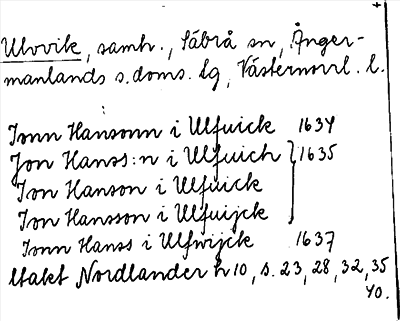 Ulvvik, samh., Säbrå sn, Ånger-
manlands s. doms. lg, Västernorrl. l.
Jonn Hansonn i Ulfuick 1634
Jon Hanss:n i Ulfuich } 1635
Jon Hanson i Ulfuick
Jon Hansson i Ulfuijck
Jonn Hanss i Ulfwijck 1637
Utakt Nordlander h 10, s. 23, 28, 32, 35
40.